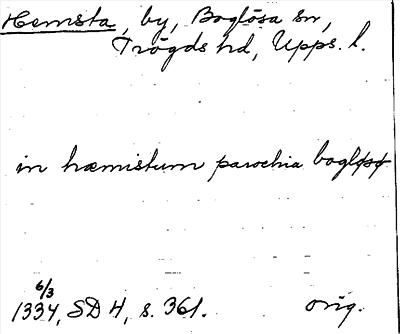 Hemsta, by, Boglösa sn,
Trögds hd, Upps. l.
in hæmistum parochia bogløsø
6/3
1334, SD 4, s. 361. orig.